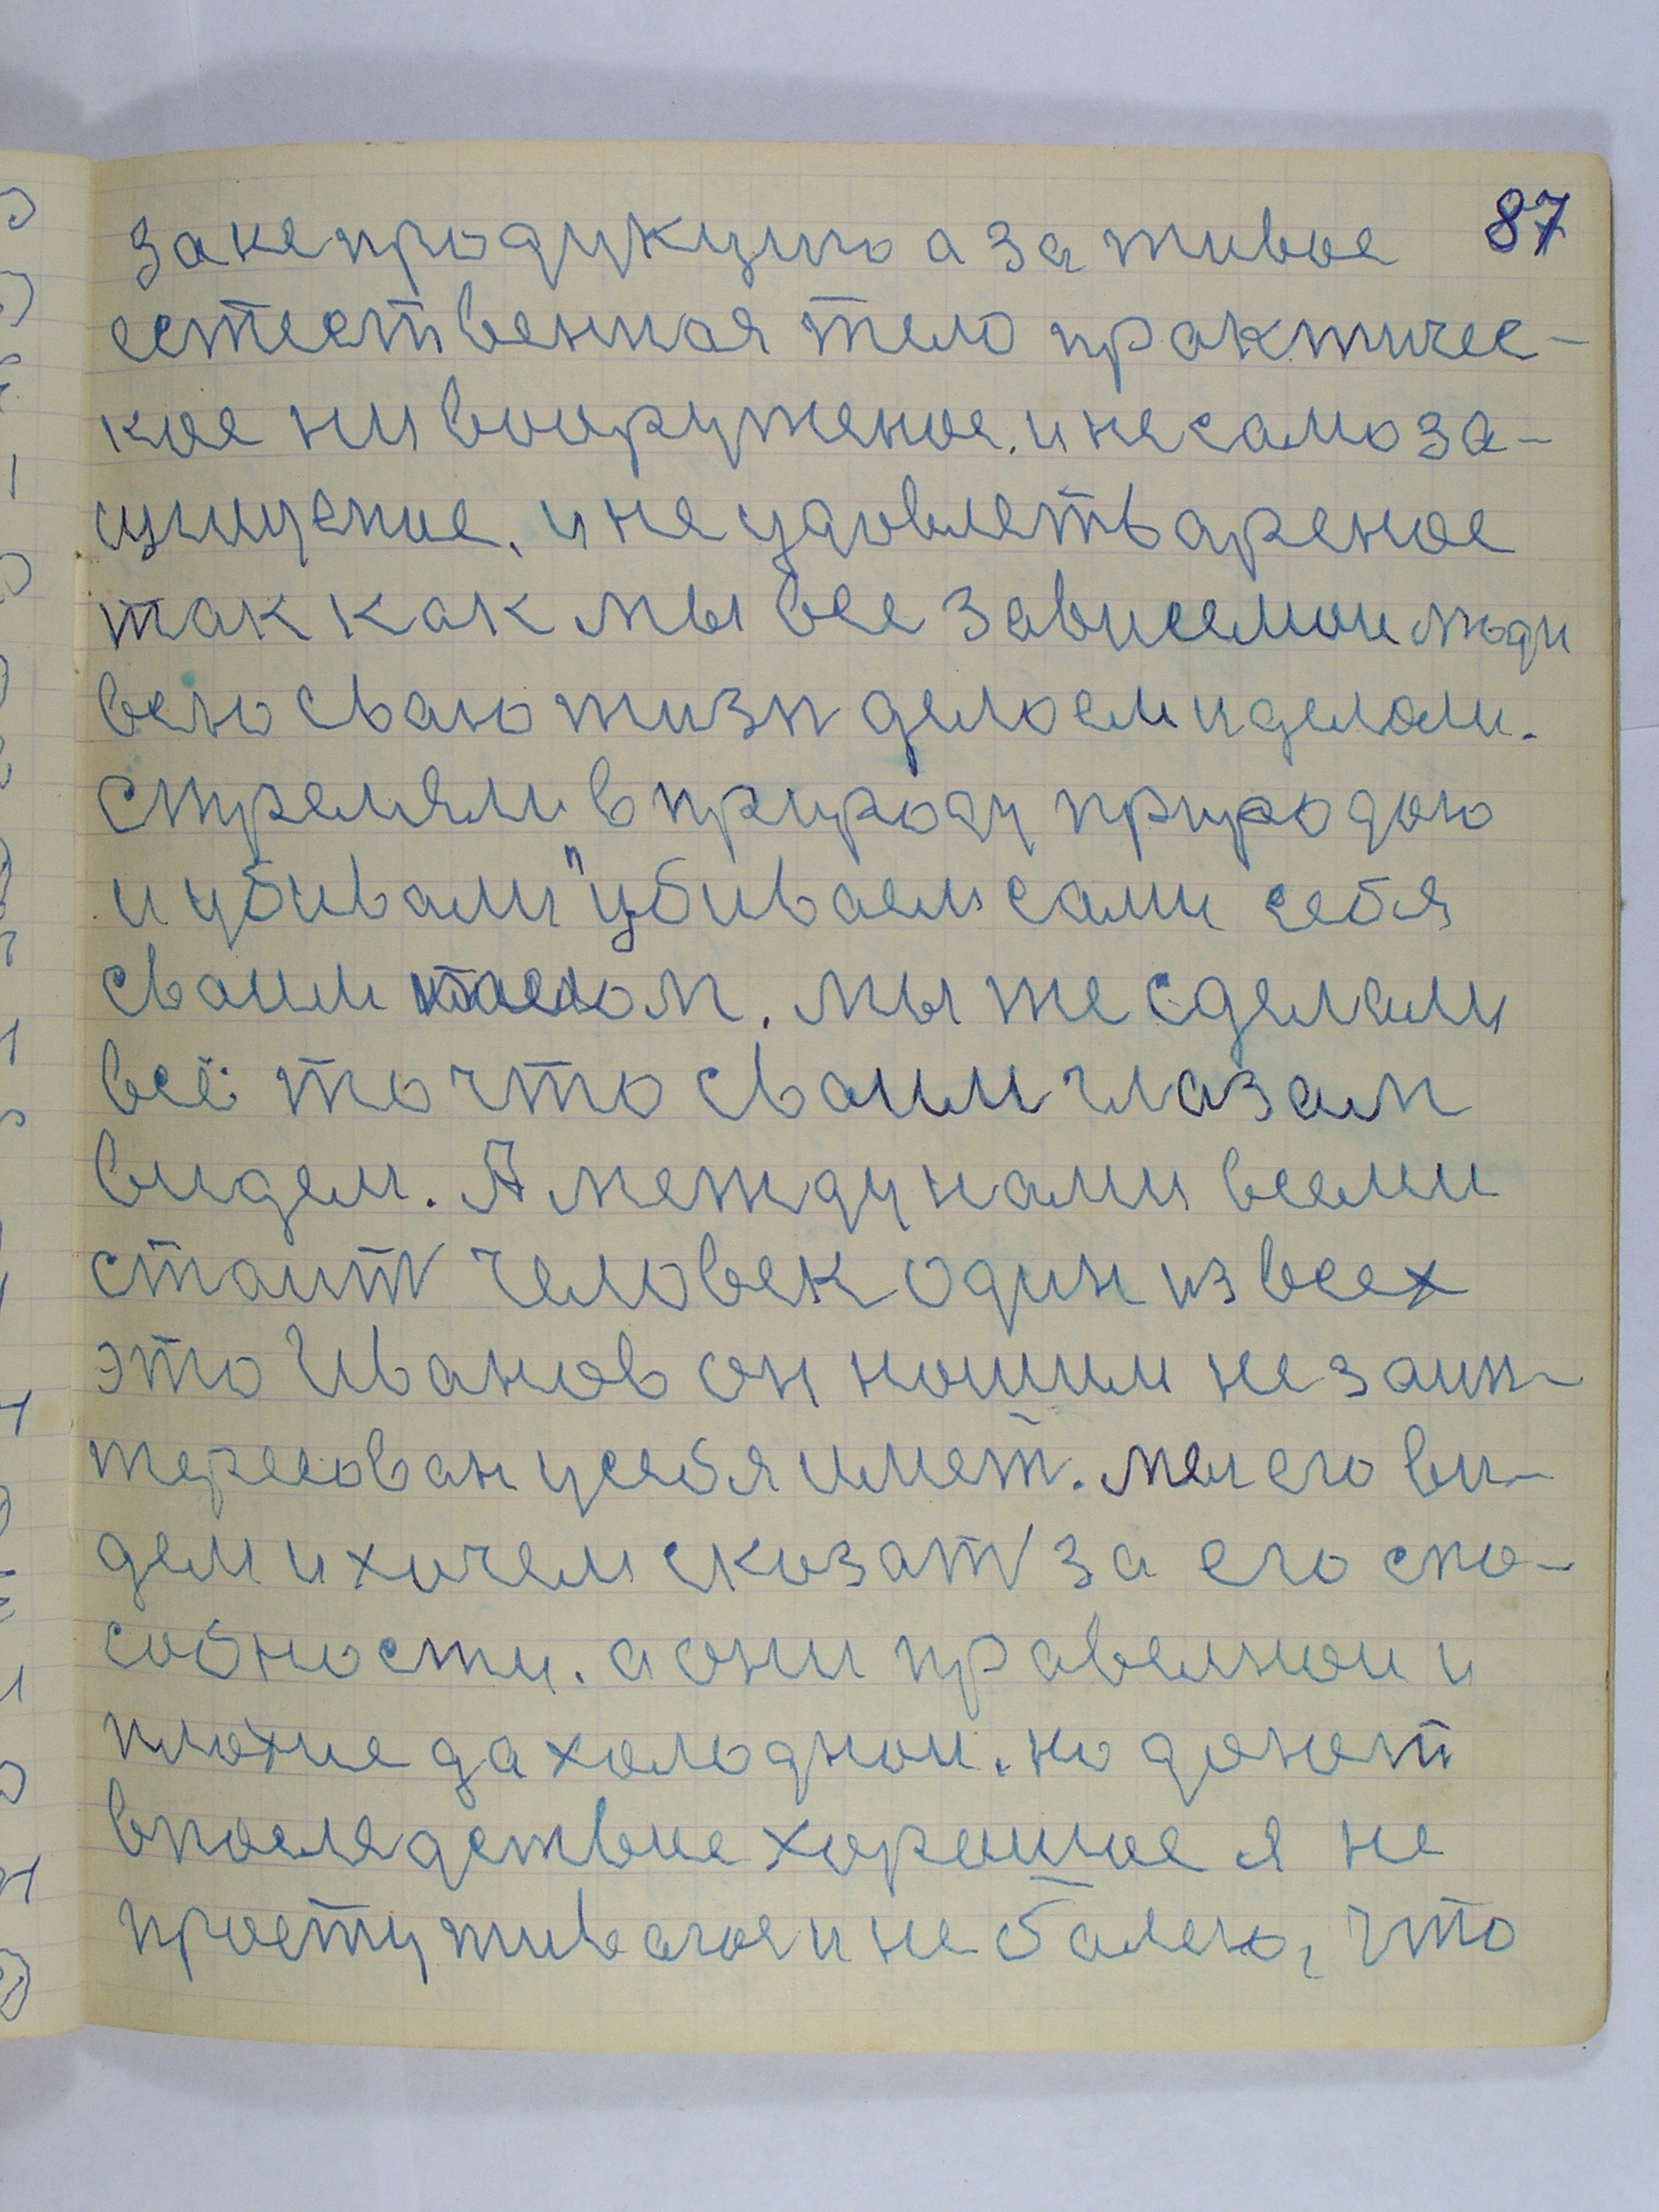 87
за ке продукцию а за живое
естественная тело практичес-
кое ни вооружоное. и не само за-
щищеное. и не удовлетвареное
так как мы все зависемои люди
всю сваю жизн делоем и делали.
Стреляли в природу природою
и убивали "убиваем сами себя
своим телом. мы же сделали
всё то что сваими глазам
видем. А между нами всеми
стаит человек один из всех
это Иванов он нашим не заин-
тересован у себя имет. мы его ви-
дем и хочем сказат за его спо-
собности. а они правелнои и
плохие да холоднои. но донет
впоследствие хорошое я не
простуживаюся и не балею, что